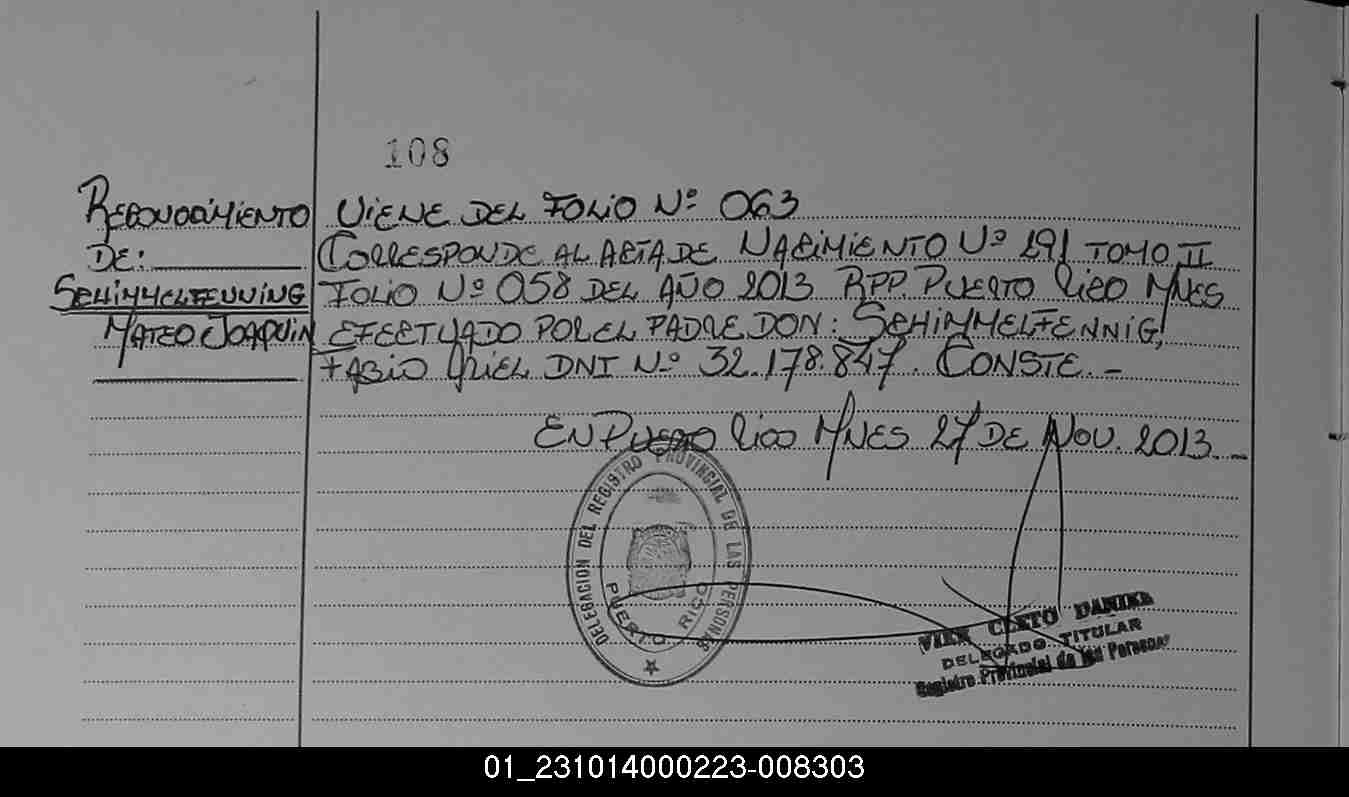 108
RECONOCIMIENTO VIENE DEL FOLIO Nº 063
DE: CORRESPONDE AL ACTA DE NACIMIENTO Nº 291 TOMO II
SCHIMMELFENNING FOLIO Nº 058 DEL AÑO 2013 RPP. PUERTO RICO MNES
MATEO JOAQUIN EFECTUADO POR EL PADRE DON: SCHIMMELFENNIG,
FABIO URIEL DNI Nº 32.178.847. CONSTE.-
EN PUERTO RICO MNES 27 DE NOV. 2013.-
DELEGACION DEL REGISTRO PROVINCIAL DE LAS PERSONAS
PUERTO RICO
CLETO
DELEGADO TITULAR
Registro Provincial de las Personas
01_231014000223-008303